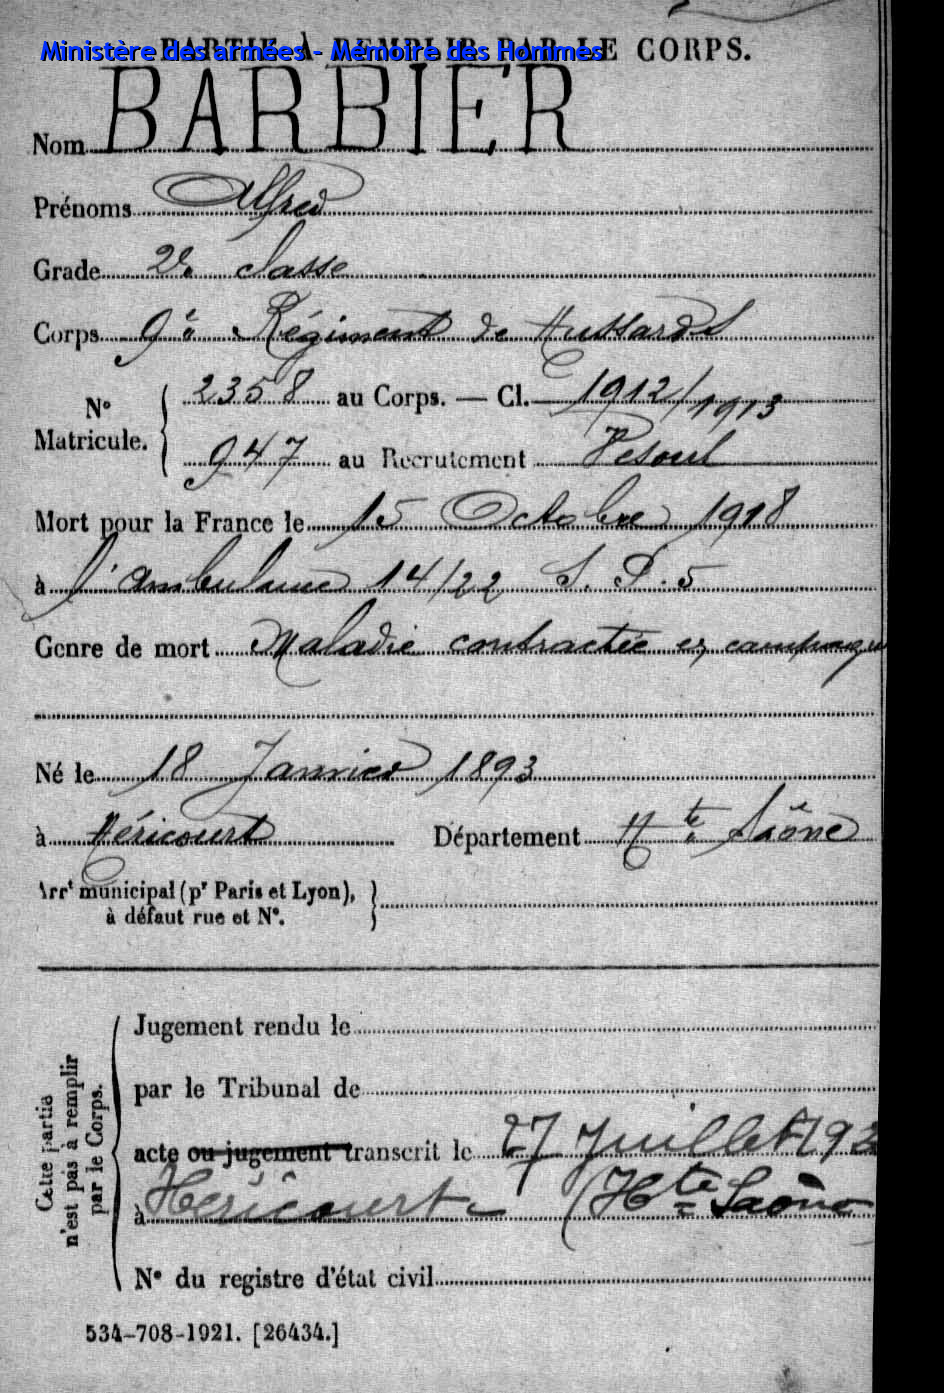 PARTIE À REMPLIR PAR LE CORPS.
Ministère des armées - Mémoire des Hommes
Nom BARBIER
Prénoms Alfred
Grade 2e classe
Corps 9e Régiment de Hussards
N° Matricule. { 2358 au Corps. — Cl. 1912/1913
947 au Recrutement Vesoul
Mort pour la France le 15 Octobre 1918
à l'ambulance 14/22 S. P. 5
Genre de mort Maladie contractée en campagne
Né le 18 Janvier 1893
à Héricourt Département Hte Saône
Arrt municipal (pr Paris et Lyon),
à défaut rue et N°. }
Cette partie
n'est pas à remplir
par le Corps.
Jugement rendu le
par le Tribunal de
acte ou jugement transcrit le 27 Juillet
à Héricourt - (Hte Saône
N° du registre d'état civil
534-708-1921. [26434.]